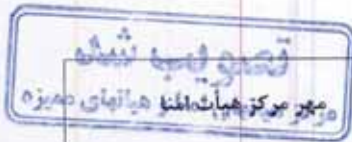 تصویب شد
مهر مرکز هیأت امنا و هیأتهای ممیزه